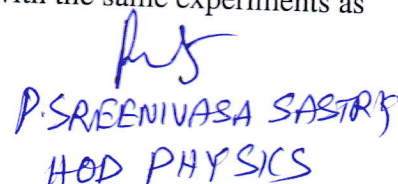 with the same experiments as
P. SREENIVASA SASTRY
HOD PHYSICS